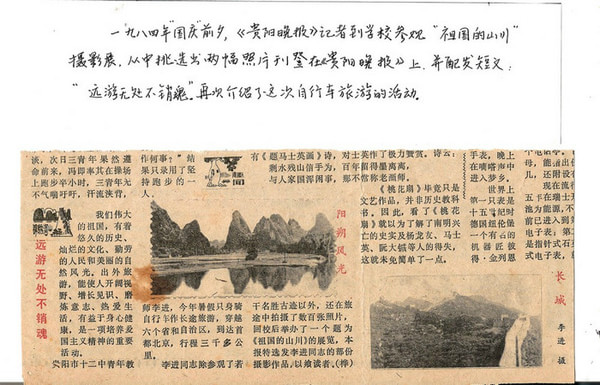 一九八四年“国庆”前夕，《贵阳晚报》记者到学校参观“祖国的山川”
摄影展，从中挑选出两幅照片刊登在《贵阳晚报》上，并配发短文：
“远游无处不销魂”。再次介绍了这次自行车旅游的活动。
谈，次日三青年果然遵
命前来，冯即率其在操场
上跑步卒小时，三青年无
不气喘吁吁，汗流浃背，
作何事？”结
果只录用了坚
持跑步的一
人。
有《题马士英画》诗，
剩水残山恰当手，
与人家国浑闲事，
对士英作了极力赞赏，诗云：
百年留得墨离离，
那不常称老画师。
《桃花扇》毕竟只是
文艺作品，并非历史教科
书。因此，看了《桃花
扇》就以为了解了南明兴
亡的史实及杨龙友、马士
英、阮大铖等人的得失，
这就未免简单了一点。
手表，晚上
在手表的嘀
嗒声中
进入梦乡。
世界上
第一只表是
十五世纪时
德国纽伦堡
一个有石的
机器匠彼
得·金列恩
远游无处不销魂
我们伟大
的祖国，有着
悠久的历史、
灿烂的文化、勤劳
的人民和美丽的自
然风光。出外旅
游，能使人开阔视
野，增长见识、磨
炼意志、热爱生
活，有益于身心健
康，是一项培养爱
国主义精神的重要
活动。
贵阳市十二中青年教
阳朔风光
师李进，今年暑假只身骑
自行车作长途旅游，穿越
六个省和自治区，到达首
都北京，行程三千多公
里。
李进同志除参观了若
干名胜古迹以外，还在旅
途中拍摄了数百张照片，
回校后举办了一个题为
《祖国的山川》的展览，本
报特选发李进同志的部份
摄影作品，以飨读者。（桦）
长城
李进 摄